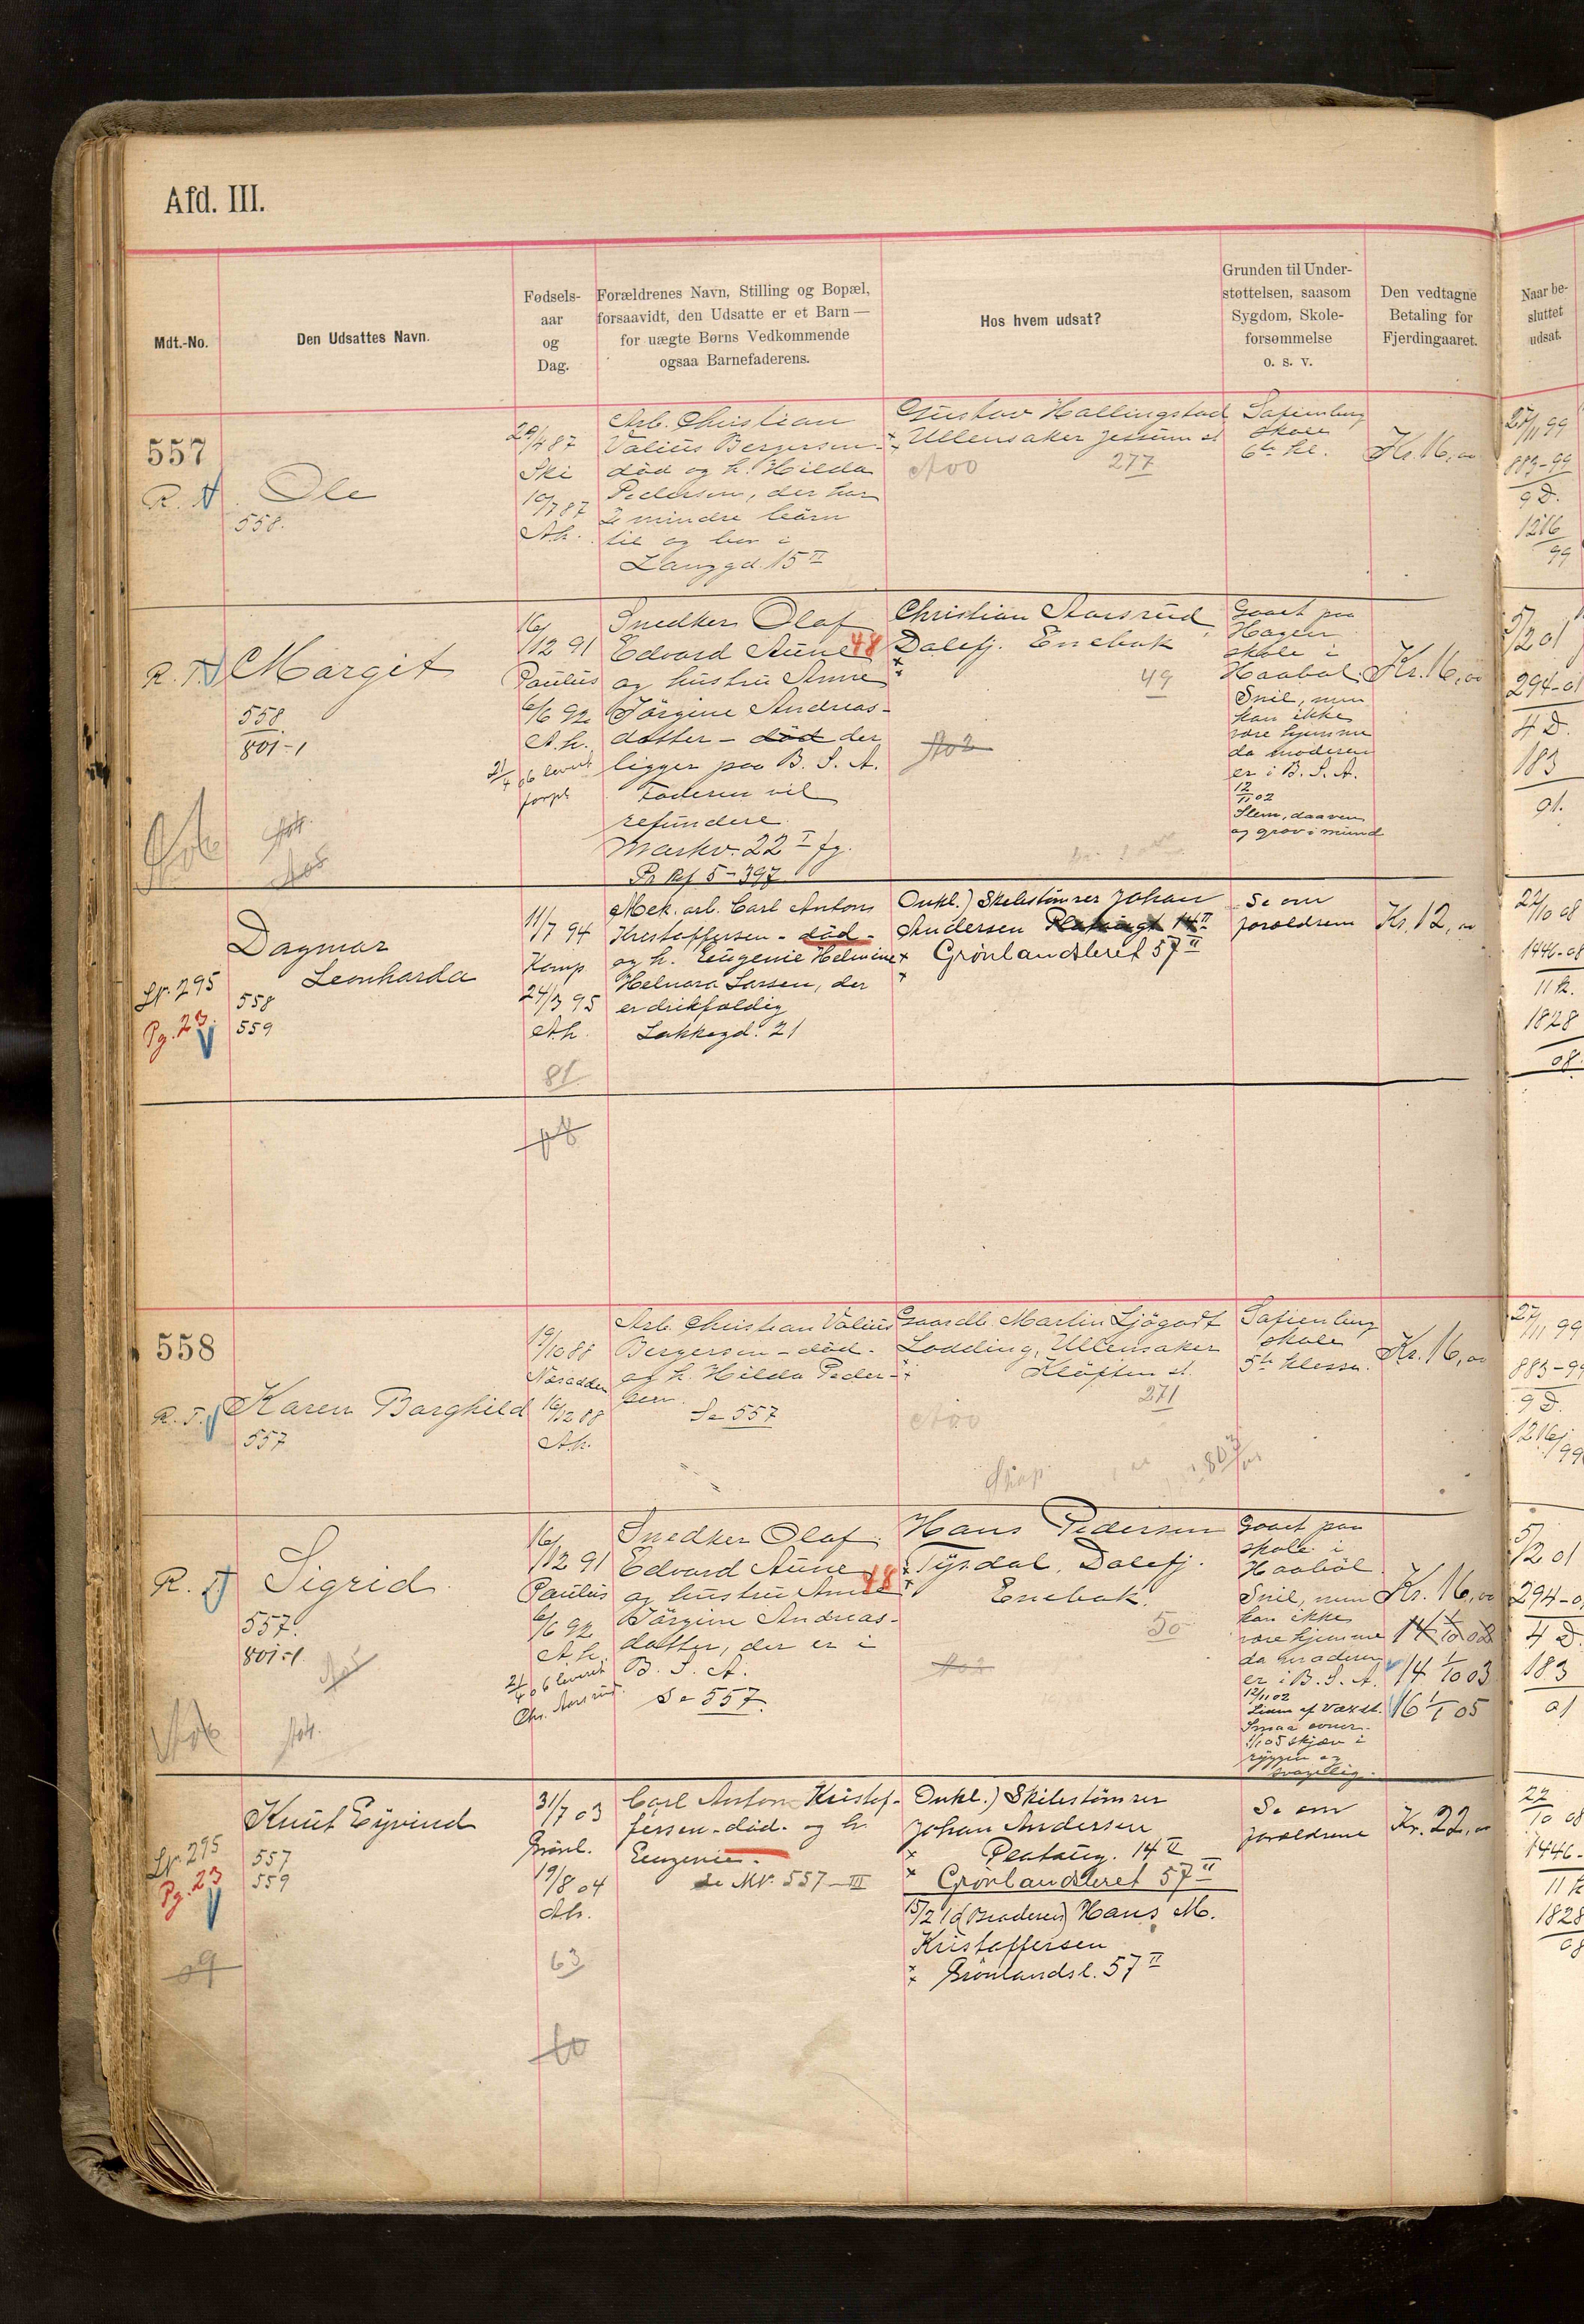 Afd. III.
Mdt.-No.
Den Udsattes Navn.
Fødsels-
aar
og
Dag.
Forældrenes Navn, Stilling og Bopæl,
forsaavidt, den Udsatte er et Barn —
for uægte Børns Vedkommende
ogsaa Barnefaderens.
Hos hvem udsat?
Grunden til Under-
støttelsen, saasom
Sygdom, Skole-
forsømmelse
o. s. v.
Den vedtagne
Betaling for
Fjerdingaaret.
Naar be-
sluttet
udsat.
557
Ole
558.
29/4 87
Ski
10/7 87
A.k.
Arb. Christian
Valius Bergersen -
död og h. Hilda
Pedersen, der har
2 mindre börn
til og bor i
Langgd. 15 II
Gustav Hallingstad
Ullensaker Jessum st
277
Sofienberg
skole
6te kl.
Kr. 16,00
27/11 99
883-99
9 D.
1216
99
R. T.
Margit
558.
801-1
16/12 91
Paulus
6/6 92
A.k.
21/4 06 levert
forpl.
Snedker Olaf
Edvard Aune 48
og hustru Anne
Jörgine Andreas-
datter - död der
ligger paa B. S. A.
Faderen vil
refundere.
Markv. 22 I fg.
Pr Ref 5-397
Christian Aarsrud,
Dalefj. Enebak
49
Gaaet paa
Hagen
skole i
Haabøl.
Snil, men
kan ikke
være hjemme
da moderen
er i B. S. A.
12/11 02
Slem, doven
og grov i mund
Kr. 16,00
5/2 01
294-01
4 D.
183
01.
Dagmar
Leonharda
Lp. 295
Pg. 23.
558
559
11/7 94
Kamp
24/3 95
A.k.
81
Mek. arb. Carl Anton
Kristoffersen - död -
og h. Eugenie Helmine
Helnora Larsen, der
er drikfældig
Lakkegd. 21
Onkl.) Skibstömrer Johan
Andersen 14 II
Grönlandsleret 57 II
Se om
forældrene
Kr. 12,00
22/10 08
1446-08
11 k.
1828
08.
558
R. T.
Karen Borghild
557
19/10 88
Næsodden
16/12 88
A.k.
Arb. Christian Valius
Bergersen - död -
og h. Hilda Peder-
sen.
Se 557
Gaardb. Martin Sjögart
Lodding, Ullensaker
Klöften st.
271
Sofienberg
skole
5te klasse.
Kr. 16,00
27/11 99
883-99
9 D.
1216/99
R. T.
Sigrid
557.
801-1
16/12 91
Paulus
6/6 92
A.k.
21/4 06 levert
Chr. Aarsrud.
Snedker Olaf
Edvard Aune 48
og hustru Anne
Jörgine Andreas-
datter, der er i
B. S. A.
Se 557.
Hans Pedersen
Tysdal, Dalefj.
Enebak.
50
Gaaet paa
skole i
Haabøl
Snil, men
kan ikke
være hjemme
da moderen
er i B. S. A.
12/11 02
Liden af vækst.
Smaa evner.
1/1 05 skjæv i
ryggen og
svagelig.
Kr. 16,00
14 1/10 02
14 1/10 03
16 1/1 05
5/2 01
294-01
4 D.
183
01
Knut Eyvind
Lp. 295
Pg. 23
557
559
31/7 03
Grönl.
19/8 04
A.k.
63
Carl Anton Kristof-
fersen - död - og h.
Eugenie.
Se Mr. 557-III
Onkl.) Skibstömrer
Johan Andersen
Platoug. 14 II
Grönlandsleret 57 II
15/2 10 (Broderen) Hans M.
Kristoffersen
Grönlandsl. 57 II
Se om
forældrene
Kr. 22,00
22/10 08
1446-
11 k
1828
08